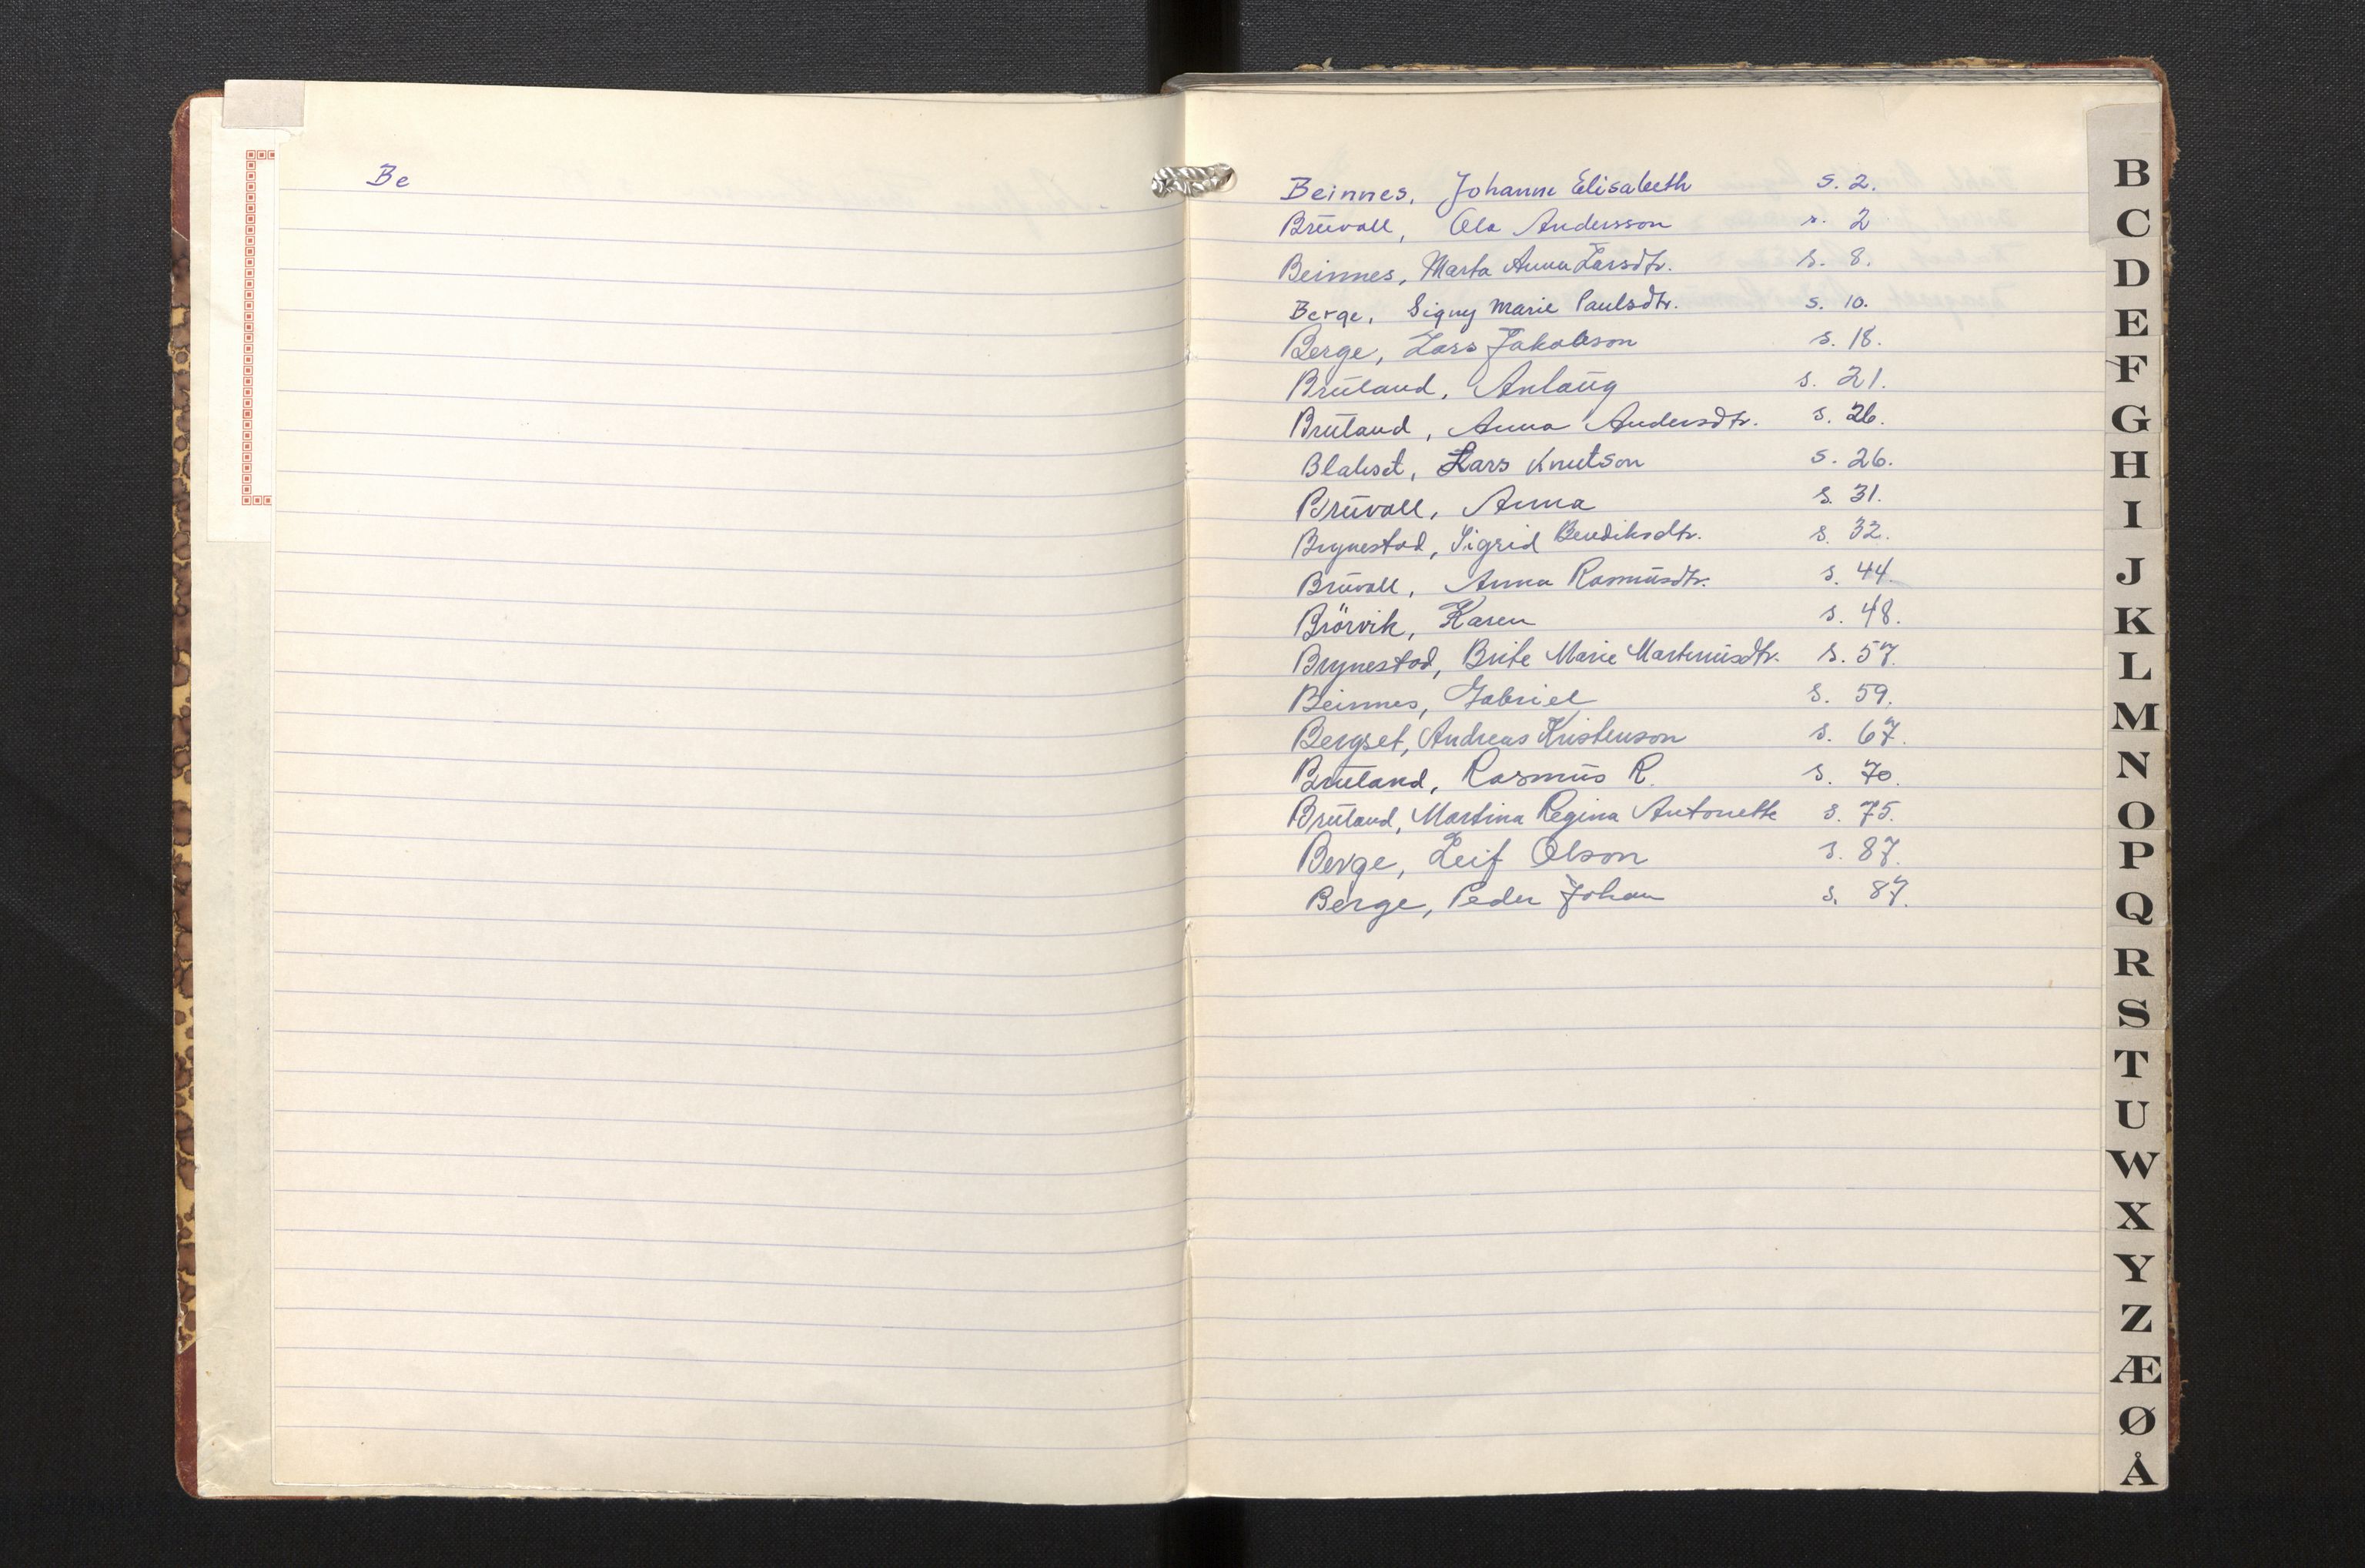 Be
Beinnes, Johanne Elisabeth s. 2.
Brüvoll, Ola Andersson s. 2
Beinnes, Marta Anna Larsdtr. s. 8.
Berge, Signy Marie Paulsdtr. s. 10.
Berge, Lars Jakobson s. 18.
Brüland, Anlaüg s. 21.
Brüland, Anna Andersdtr. s. 26.
Blakset, Lars Knutson s. 26.
Brüvoll, Anna s. 31.
Brynestad, Sigrid Bendiksdtr. s. 32.
Brüvoll, Anna Rasmüsdtr. s. 44.
Brörvik, Karen s. 48.
Brynestad, Brite Marie Martinüsdtr. s. 57.
Beinnes, Gabriel s. 59.
Bergset, Andreas Kristenson s. 67.
Brüland, Rasmüs R. s. 70.
Brüland, Martina Regina Antonette s. 75.
Berge, Leif Olson s. 87.
Berge, Peder Johan s. 87.
B
C
D
E
F
G
H
I
J
K
L
M
N
O
P
Q
R
S
T
U
W
X
Y
Z
Æ
Ø
Å